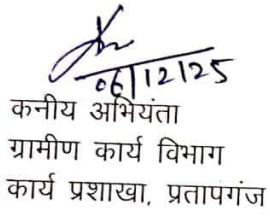 06/12/25
कनीय अभियंता
ग्रामीण कार्य विभाग
कार्य प्रशाखा, प्रतापगंज